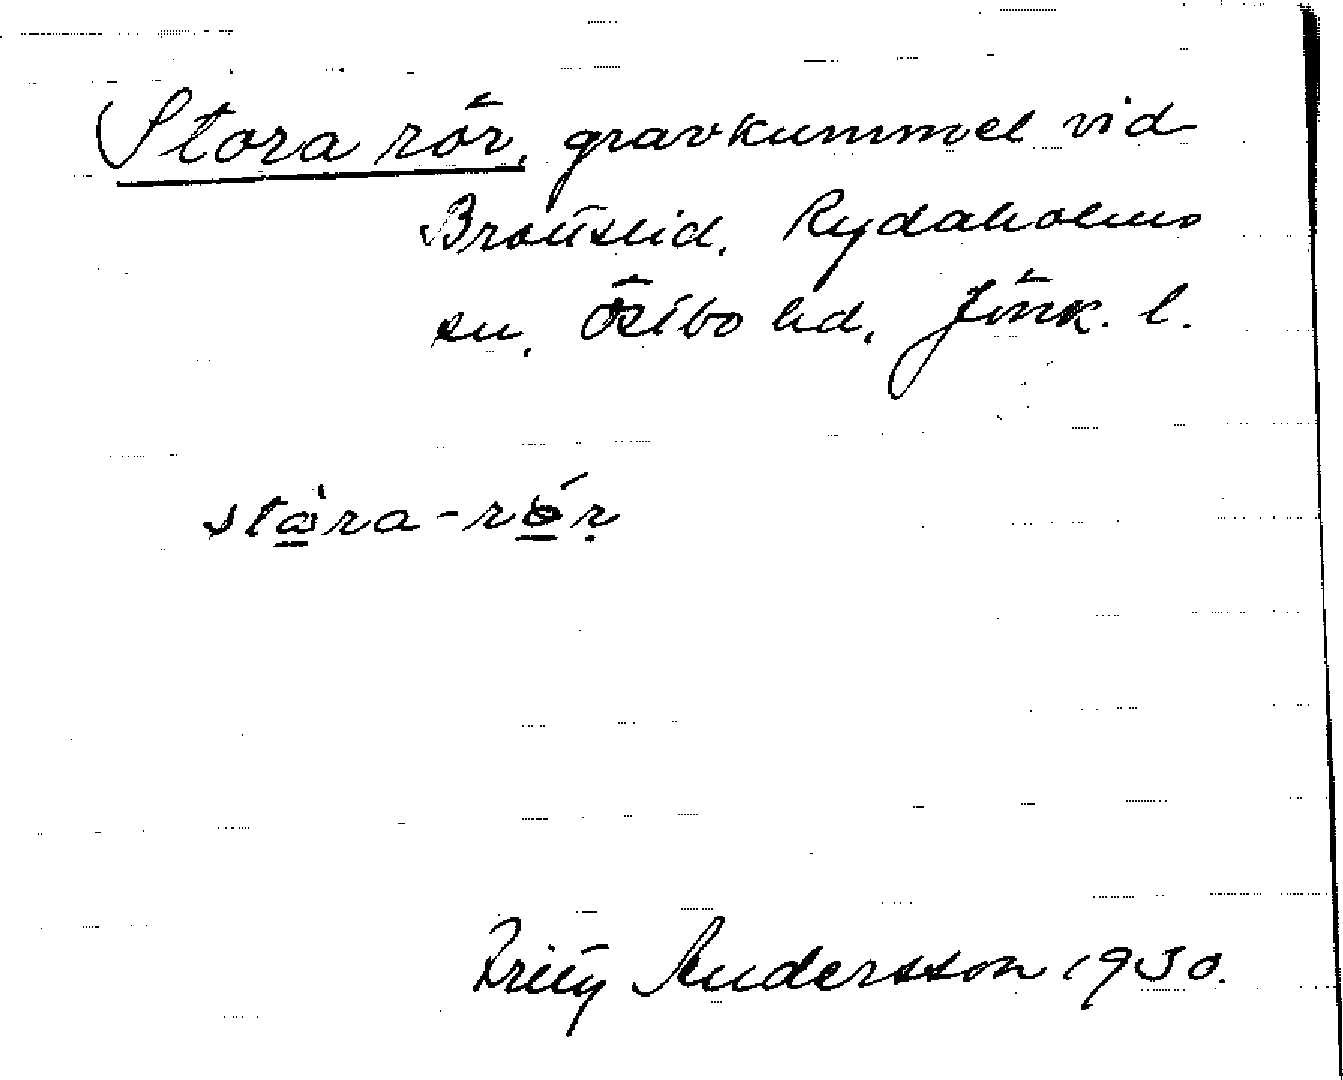 Stora rör, gravkummel vid
Brautslid, Rydaholms
sn, Östbo hd, Jönk. l.
stå̀ra-rö́r
Britz Andersson 1930.